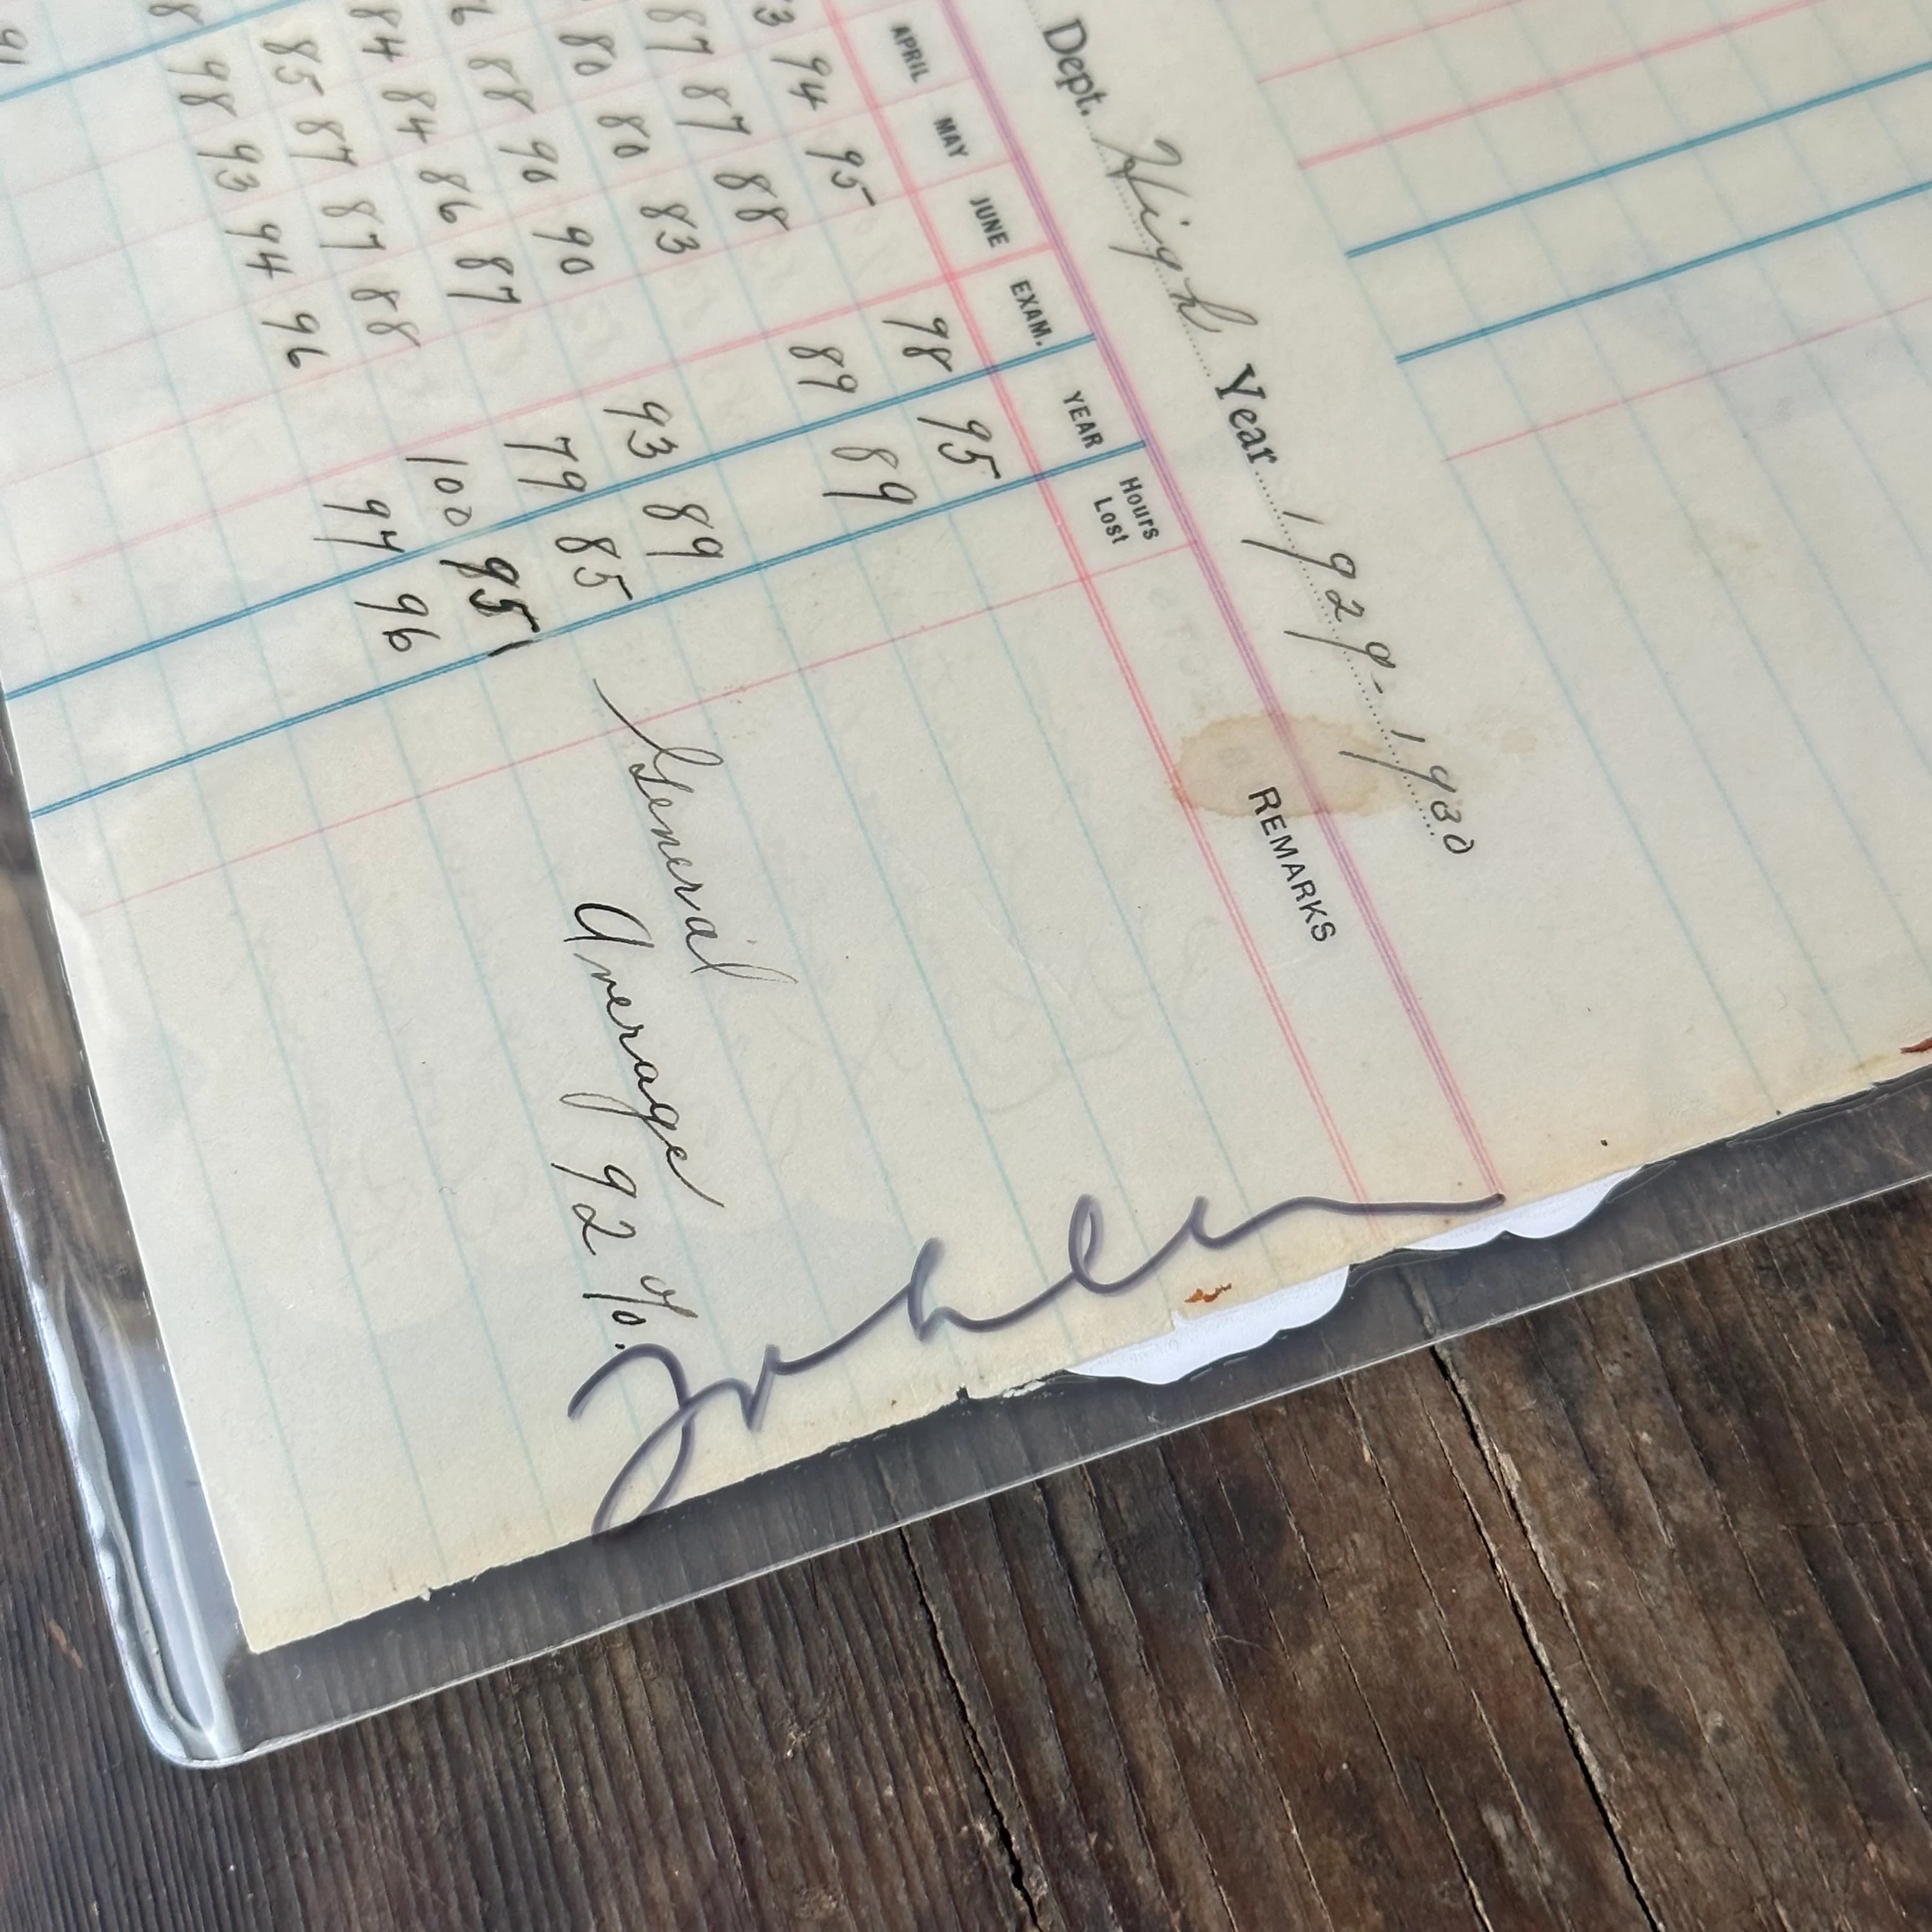 Dept. High Year 1929-1930
APRIL MAY JUNE EXAM. YEAR Hours Lost REMARKS
94 95 98 95
87 87 88 89 89
80 80 83
88 90 90 93 89
84 84 86 87 79 85 General
85 87 87 88 100 95 Average
98 93 94 96 97 96 92 %.